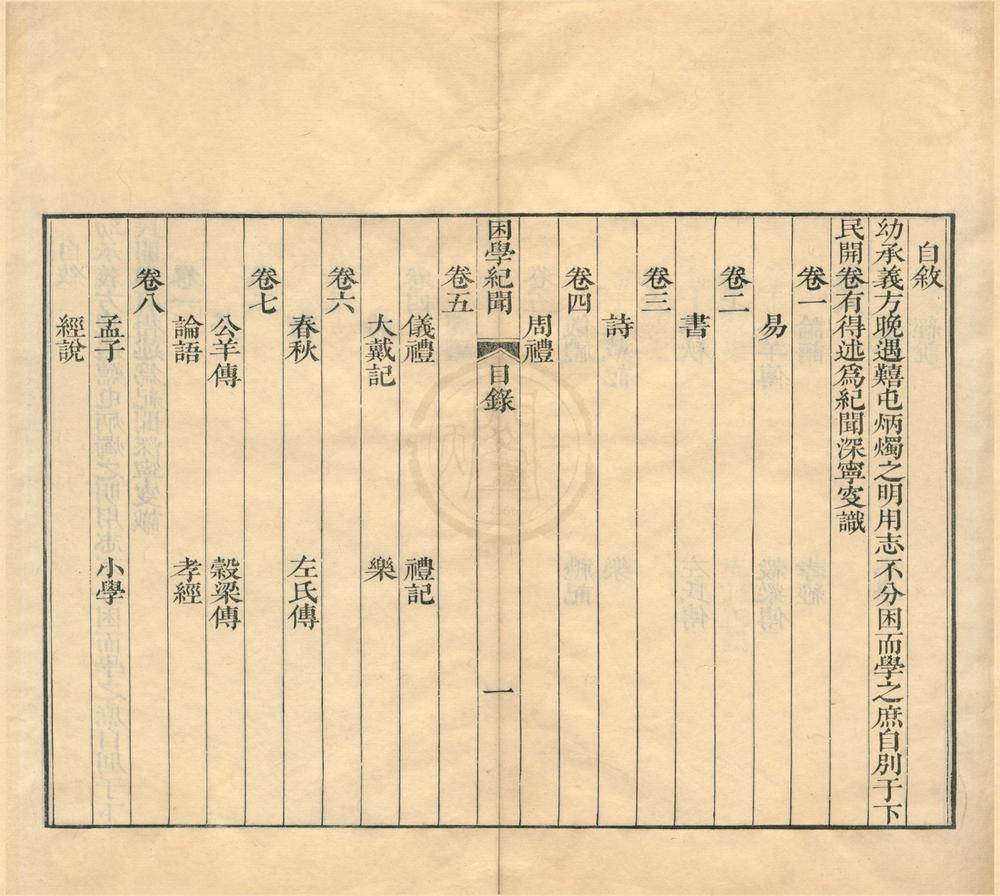 自敘
幼承義方晚遇囏屯炳燭之明用志不分困而學之庶自別于下
民開卷有得述爲紀聞深寧叜識
卷一
易
卷二
書
卷三
詩
卷四
周禮
困學紀聞 目錄 一
卷五
儀禮 禮記
大戴記 樂
卷六
春秋 左氏傳
卷七
公羊傳 穀梁傳
論語 孝經
卷八
孟子 小學
經說